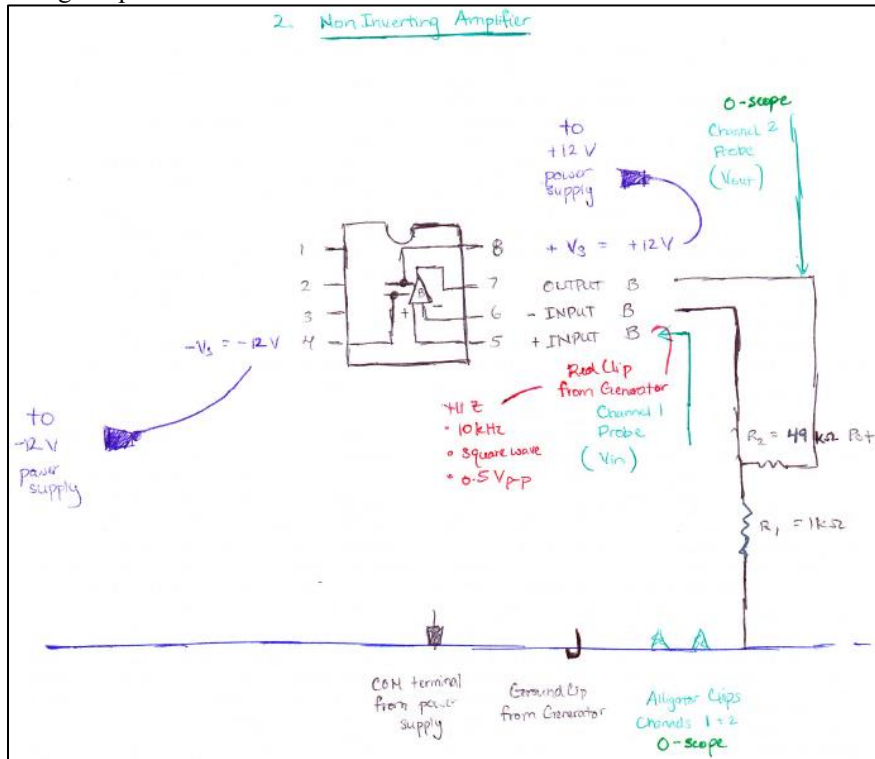 2. Non Inverting Amplifier
O-scope
Channel 2
Probe
(Vout)
to
+12 V
power
supply
1
2
3
4
8
7
6
5
B
+
-
+ Vs = +12V
OUTPUT B
- INPUT B
+ INPUT B
-Vs = -12 V
to
-12 V
power
supply
Red Clip
from Generator
• 10 kHz
• square wave
• 0.5 Vp-p
Channel 1
Probe
(Vin)
R2 = 49 kΩ Pot
R1 = 1kΩ
COM terminal
from power
supply
Ground Clip
from Generator
Alligator Clips
Channels 1 + 2
O-scope